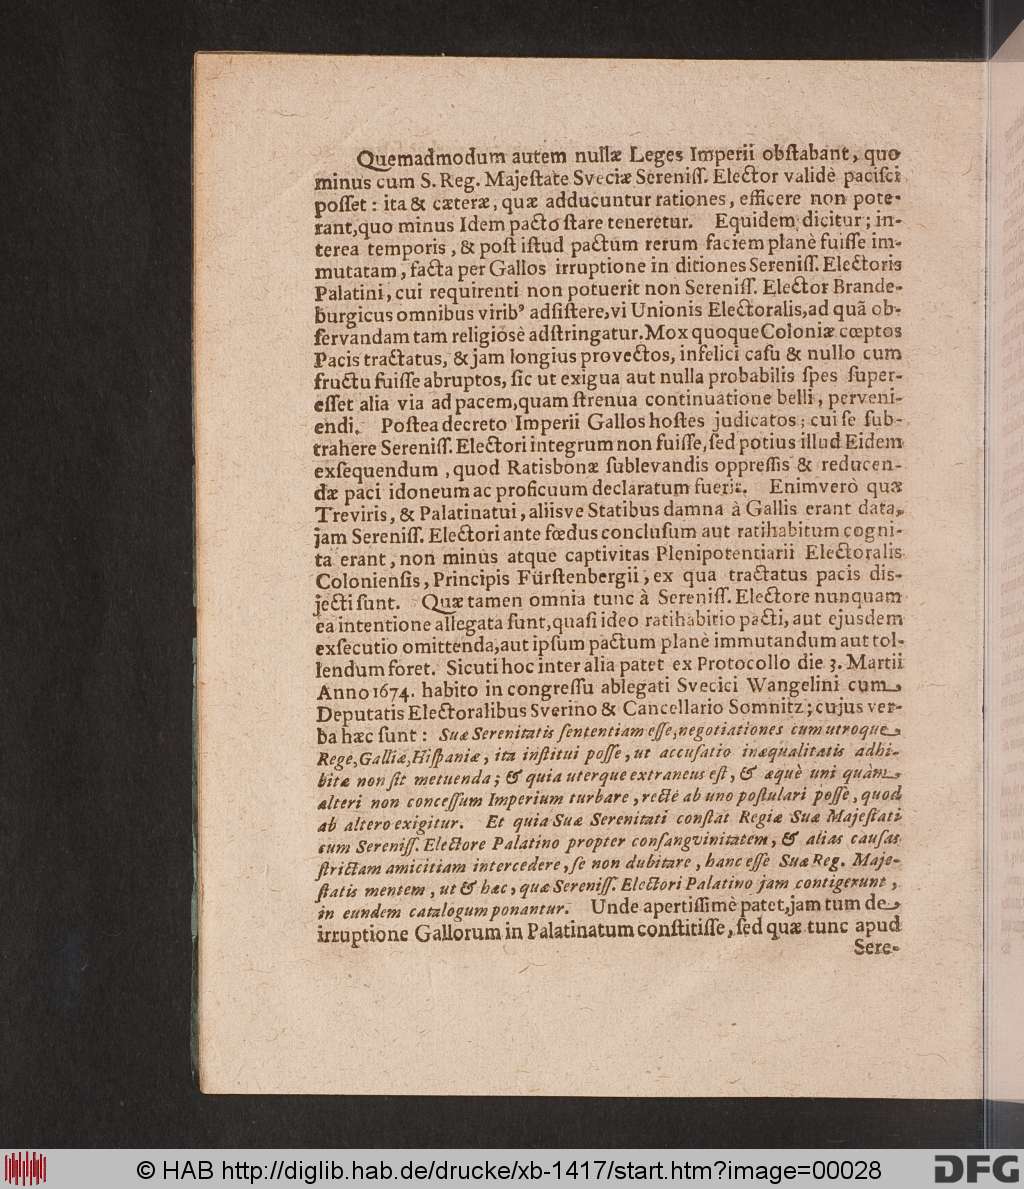 Quemadmodum autem nullæ Leges Imperii obſtabant, quo
minus cum S. Reg. Majeſtate Sveciæ Sereniſſ. Elector validè paciſci
poſſet : ita & cæteræ, quæ adducuntur rationes, efficere non pote-
rant, quo minus Idem pacto ſtare teneretur. Equidem dicitur; in-
terea temporis, & poſt iſtud pactum rerum faciem planè fuiſſe im-
mutatam, facta per Gallos irruptione in ditiones Sereniſſ. Electoris
Palatini, cui requirenti non potuerit non Sereniſſ. Elector Brande-
burgicus omnibus virib⁹ adſiſtere, vi Unionis Electoralis, ad quã ob-
ſervandam tam religiosè adſtringatur. Mox quoque Coloniæ cœptos
Pacis tractatus, & jam longius provectos, infelici caſu & nullo cum
fructu fuiſſe abruptos, ſic ut exigua aut nulla probabilis ſpes ſuper-
eſſet alia via ad pacem, quam ſtrenua continuatione belli, perveni-
endi. Poſtea decreto Imperii Gallos hoſtes judicatos; cui ſe ſub-
trahere Sereniſſ. Electori integrum non fuiſſe, ſed potius illud Eidem
exſequendum, quod Ratisbonæ ſublevandis oppreſſis & reducen-
dæ paci idoneum ac proficuum declaratum fuerit. Enimverò quæ
Treviris, & Palatinatui, aliisve Statibus damna à Gallis erant data,
jam Sereniſſ. Electori ante fœdus concluſum aut ratihabitum cogni-
ta erant, non minus atque captivitas Plenipotentiarii Electoralis
Colonienſis, Principis Fürſtenbergii, ex qua tractatus pacis dis-
jecti ſunt. Quæ tamen omnia tunc à Sereniſſ. Electore nunquam
ea intentione allegata ſunt, quaſi ideo ratihabitio pacti, aut ejusdem
exſecutio omittenda, aut ipſum pactum planè immutandum aut tol-
lendum foret. Sicuti hoc inter alia patet ex Protocollo die 3. Martii
Anno 1674. habito in congreſſu ablegati Svecici Wangelini cum
Deputatis Electoralibus Sverino & Cancellario Somnitz; cujus ver-
ba hæc ſunt : Suæ Serenitatis ſententiam eſſe, negotiationes cum utroque
Rege, Galliæ, Hiſpaniæ, ita inſtitui poſſe, ut accuſatio inæqualitatis adhi-
bitæ non ſit metuenda; & quia uterque extraneus eſt, & æquè uni quàm
alteri non conceſſum Imperium turbare, rectè ab uno poſtulari poſſe, quod
ab altero exigitur. Et quia Suæ Serenitati conſtat Regiæ Suæ Majeſtati
cum Sereniſſ. Electore Palatino propter conſangvinitatem, & alias cauſas
ſtrictam amicitiam intercedere, ſe non dubitare, hanc eſſe Suæ Reg. Maje-
ſtatis mentem, ut & hæc, quæ Sereniſſ. Electori Palatino jam contigerunt,
in eundem catalogum ponantur. Unde apertiſſimè patet, jam tum de
irruptione Gallorum in Palatinatum conſtitiſſe, ſed quæ tunc apud
Sere-
© HAB http://diglib.hab.de/drucke/xb-1417/start.htm?image=00028
DFG